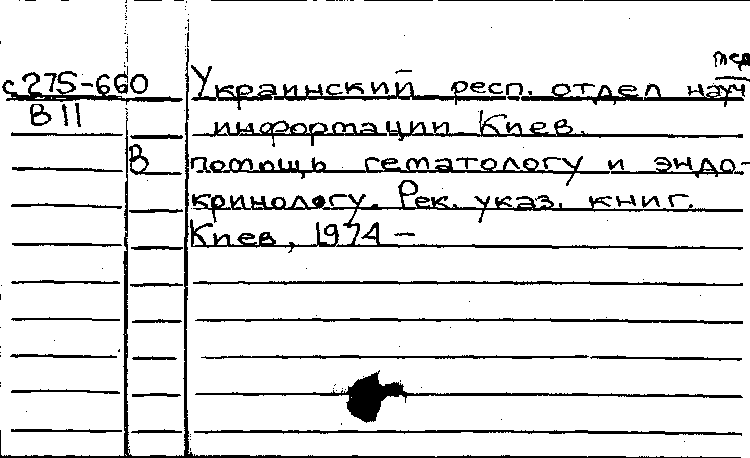 мед
с275-660 Украинский респ. отдел науч
В11 информации. Киев.
В помощь гематологу и эндо-
кринологу. Рек. указ. книг.
Киев, 1974 –